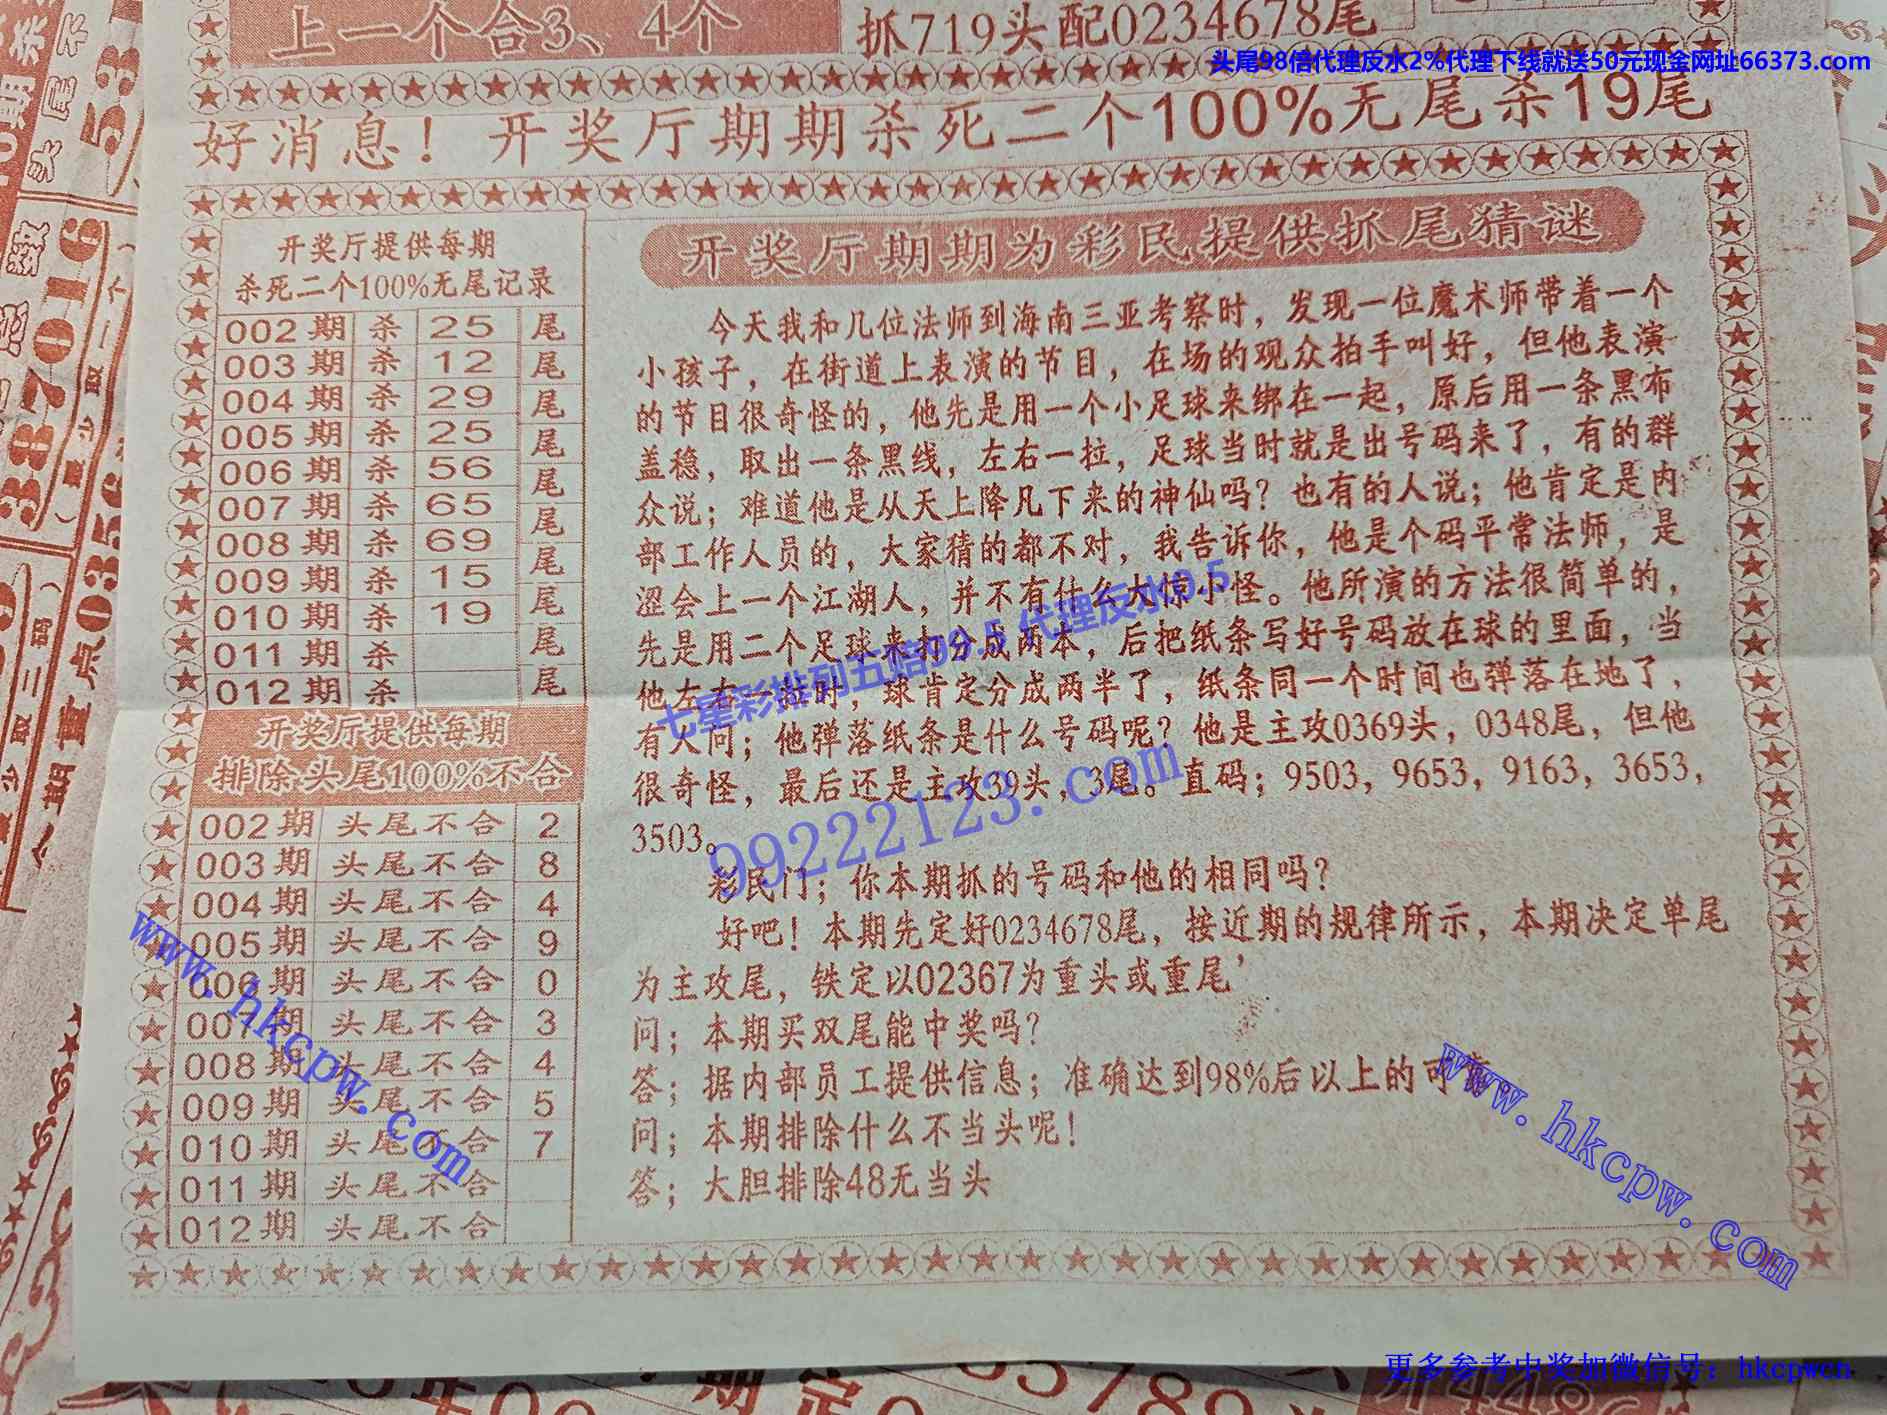 上一个合3、4个
抓719头配0234678尾
头尾98倍代理反水2%代理下线就送50元现金网址66373.com
好消息！开奖厅期期杀死二个100%无尾杀19尾
开奖厅提供每期
杀死二个100%无尾记录
002期 杀 25 尾
003期 杀 12 尾
004期 杀 29 尾
005期 杀 25 尾
006期 杀 56 尾
007期 杀 65 尾
008期 杀 69 尾
009期 杀 15 尾
010期 杀 19 尾
011期 杀 尾
012期 杀 尾
开奖厅提供每期
排除头尾100%不合
002期 头尾不合 2
003期 头尾不合 8
004期 头尾不合 4
005期 头尾不合 9
006期 头尾不合 0
007期 头尾不合 3
008期 头尾不合 4
009期 头尾不合 5
010期 头尾不合 7
011期 头尾不合
012期 头尾不合
开奖厅期期为彩民提供抓尾猜谜
今天我和几位法师到海南三亚考察时，发现一位魔术师带着一个
小孩子，在街道上表演的节目，在场的观众拍手叫好，但他表演
的节目很奇怪的，他先是用一个小足球来绑在一起，原后用一条黑布
盖稳，取出一条黑线，左右一拉，足球当时就是出号码来了，有的群
众说；难道他是从天上降凡下来的神仙吗？也有的人说；他肯定是内
部工作人员的，大家猜的都不对，我告诉你，他是个码平常法师，是
涩会上一个江湖人，并不有什么大惊小怪。他所演的方法很简单的，
先是用二个足球来打分成两本，后把纸条写好号码放在球的里面，当
他左右一拉时，球肯定分成两半了，纸条同一个时间也弹落在地了，
有人问；他弹落纸条是什么号码呢？他是主攻0369头，0348尾，但他
很奇怪，最后还是主攻39头，3尾。直码；9503，9653，9163，3653，
3503。
彩民门；你本期抓的号码和他的相同吗？
好吧！本期先定好0234678尾，按近期的规律所示，本期决定单尾
为主攻尾，铁定以02367为重头或重尾’
问；本期买双尾能中奖吗？
答；据内部员工提供信息；准确达到98%后以上的可靠
问；本期排除什么不当头呢！
答；大胆排除48无当头
七星彩排列五赔99.5 代理反水9.5
99222123.com
www.hkcpw.com
www.hkcpw.com
更多参考中奖加微信号：hkcpwcn
387016